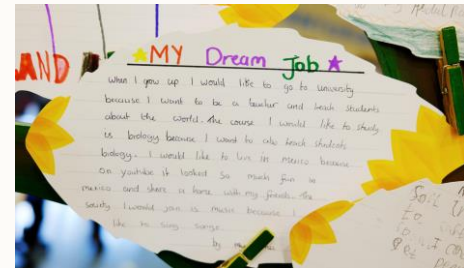 LAND
MY Dream Job
When I grow up I would like to go to university
because I want to be a teacher and teach students
about the world. The course I would like to study
is biology because I want to also teach students
biology. I would like to live in mexico because
on youtube it looked so much fun in
mexico and share a home with my friends. The
society I would join is music because I
like to sing songs
by
Soil
to